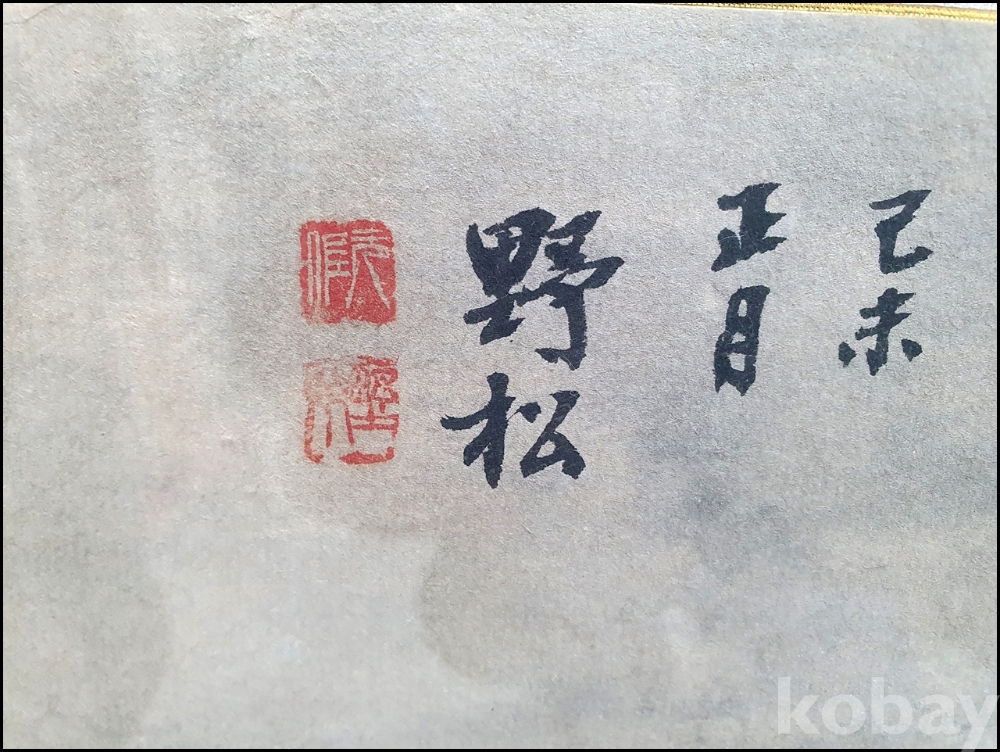 己未
正月
野松
kobay